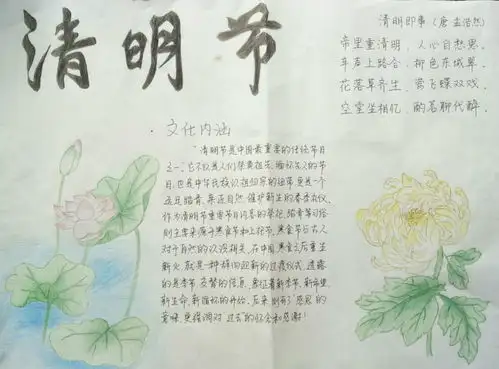 清明节
清明即事（唐 孟浩然）
帝里重清明，人心自愁思。
车声上路合，柳色东城翠。
花落草齐生，莺飞蝶双戏。
空堂坐相忆，酌茗聊代醉。
·文化内涵
清明节是中国最重要的传统节日
之一。它不仅是人们祭奠祖先、缅怀先人的节
日，也是中华民族认祖归宗的纽带，更是一个
远足踏青、亲近自然、催护新生的春季仪式。
作为清明节重要节日内容的祭祀、踏青等习俗
则主要来源于寒食节和上巳节，寒食节与古人
对于自然的认识相关，在中国，寒食之后重生
新火就是一种辞旧迎新的过渡仪式，透露
的是季节交替的信息，象征着新季节、新希望、
新生命、新循环的开始。后来则有了感恩的
意味，更强调对过去的怀念和感谢！